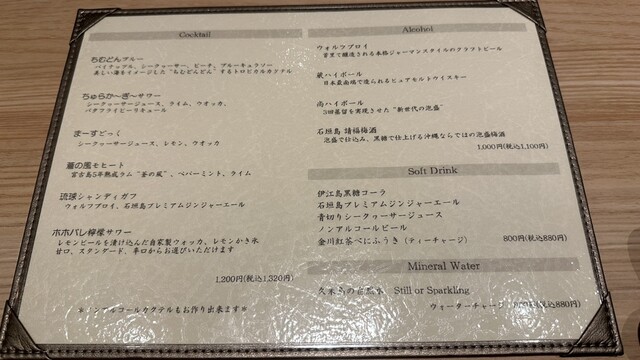 Cocktail
ちむどんブルー
パイナップル、シークヮーサー、ピーチ、ブルーキュラソー
美しい海をイメージした“ちむどんどん”するトロピカルカクテル
ちゅらか～ぎ～サワー
シークヮーサージュース、ライム、ウオッカ、
バタフライピーリキュール
まーすどっく
シークヮーサージュース、レモン、ウオッカ
釜の風モヒート
宮古島5年熟成ラム“釜の風”、ペパーミント、ライム
琉球シャンディガフ
ウォルフブロイ、石垣島プレミアムジンジャーエール
ホホバレ檸檬サワー
レモンピールを漬け込んだ自家製ウォッカ、レモンかき氷
甘口、スタンダード、辛口からお選びいただけます
1,200円(税込1,320円)
※ノンアルコールカクテルもお作り出来ます※
Alcohol
ウォルフブロイ
首里で醸造される本格ジャーマンスタイルのクラフトビール
蔵ハイボール
日本最南端で造られるピュアモルトウイスキー
尚ハイボール
3回蒸留を実現させた“新世代の泡盛”
石垣島 請福梅酒
泡盛で仕込み、黒糖で仕上げる沖縄ならではの泡盛梅酒
1,000円(税込1,100円)
Soft Drink
伊江島黒糖コーラ
石垣島プレミアムジンジャーエール
青切りシークヮーサージュース
ノンアルコールビール
金川紅茶べにふうき (ティーチャージ)
800円(税込880円)
Mineral Water
久米島の Still or Sparkling
ウォーターチャージ (税込880円)